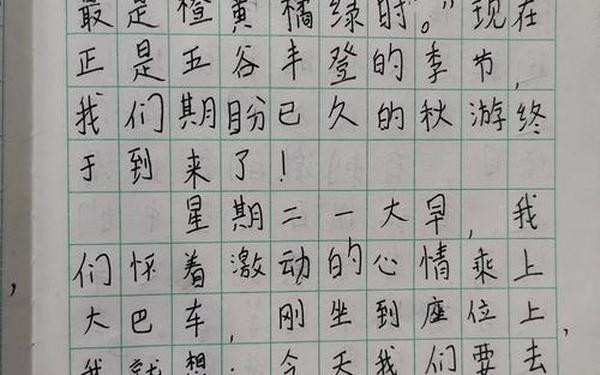 最是橙黄橘绿时。”现在
正是五谷丰登的季节，
我们期盼已久的秋游终
于到来了！
星期二一大早，我
们怀着激动的心情乘上
大巴车，刚坐到座位上，
我就想：今天我们要去